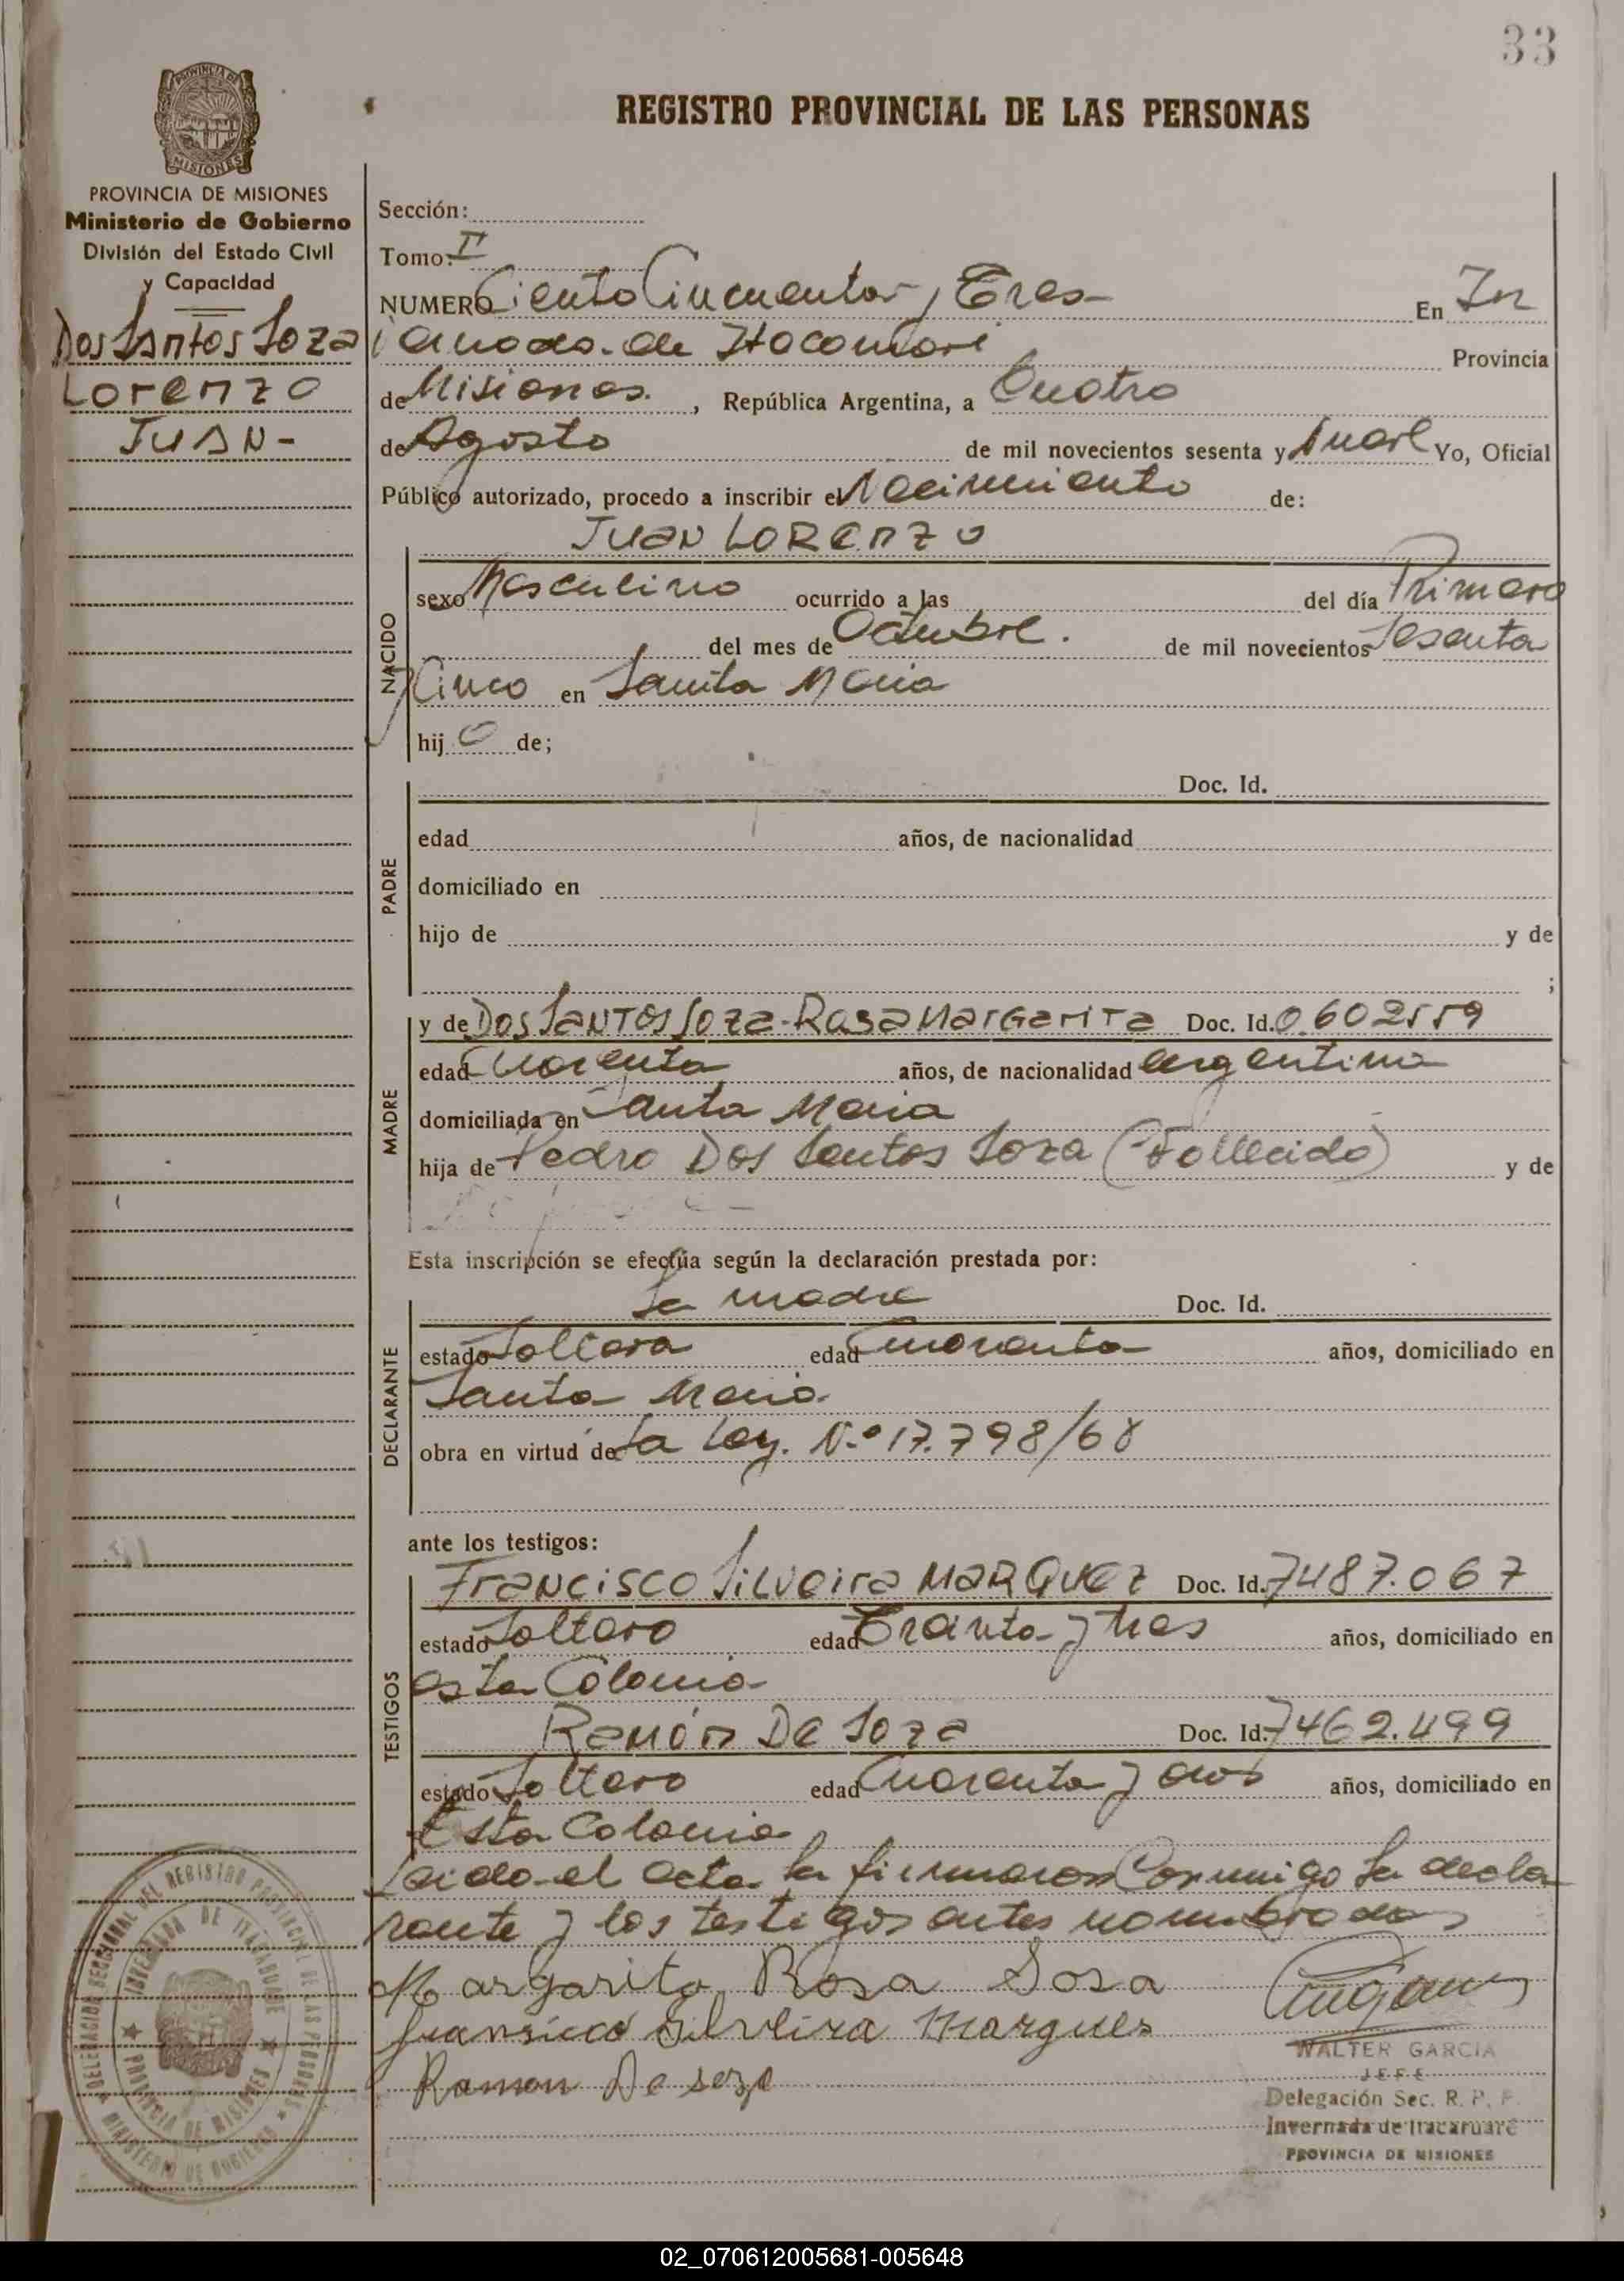 33
PROVINCIA DE
MISIONES
REGISTRO PROVINCIAL DE LAS PERSONAS
PROVINCIA DE MISIONES
Ministerio de Gobierno
División del Estado Civil
y Capacidad
Dos Santos Soza
Lorenzo
JUAN-
Sección:
Tomo: II
NUMERO Ciento Cincuenta y Tres- En In
vernada de Itacaruaré Provincia
de Misiones. , República Argentina, a Cuatro
de Agosto de mil novecientos sesenta y nueve Yo, Oficial
Público autorizado, procedo a inscribir el Nacimiento de:
JUAN LORENZO
NACIDO
sexo Masculino ocurrido a las del día Primero
del mes de Octubre. de mil novecientos Sesenta
y Cinco en Santa Maria
hij o de;
PADRE
Doc. Id.
edad años, de nacionalidad
domiciliado en
hijo de y de
;
MADRE
y de Dos Santos Soza-Rosa Margarita Doc. Id. 0.602559
edad Cuarenta años, de nacionalidad argentina
domiciliada en Santa Maria
hija de Pedro Dos Santos Soza (Fallecido) y de
Esta inscripción se efectúa según la declaración prestada por:
DECLARANTE
La madre Doc. Id.
estado Soltera edad Cuarenta años, domiciliado en
Santa Maria.
obra en virtud de La Ley. N.º 17.798/68
ante los testigos:
TESTIGOS
Francisco Silveira MARQUEZ Doc. Id. 7487.067
estado Soltero edad Treinta y tres años, domiciliado en
esta Colonia
Ramón De Soza Doc. Id. 7462.499
estado Soltero edad Cuarenta y dos años, domiciliado en
Esta Colonia
Leida el acta la firmaron Conmigo la decla
rante y los testigos antes nombrados
Margarita Rosa Sosa
fransico Silveira Marques
Ramon De soza
WALTER GARCIA
JEFE
Delegación Sec. R. P. P.
Invernada de Itacaruaré
PROVINCIA DE MISIONES
DELEGACION SECCIONAL DEL REGISTRO PROVINCIAL DE LAS PERSONAS
INVERNADA DE ITACARUARE
PROVINCIA DE MISIONES
MINISTERIO DE GOBIERNO
02_070612005681-005648